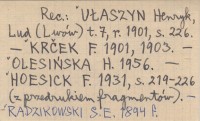 Rec.: ˇUŁASZYN Henryk,
Lud (Lwów) t. 7, r. 1901, s. 226.
— ˇKRČEK F. 1901, 1903. —
ˇOLESIŃSKA H. 1956. —
ˇHOESICK F. 1931, s. 219-226
(z przedrukiem fragmentów). —
ˇRADZIKOWSKI S.E. 1894 f.